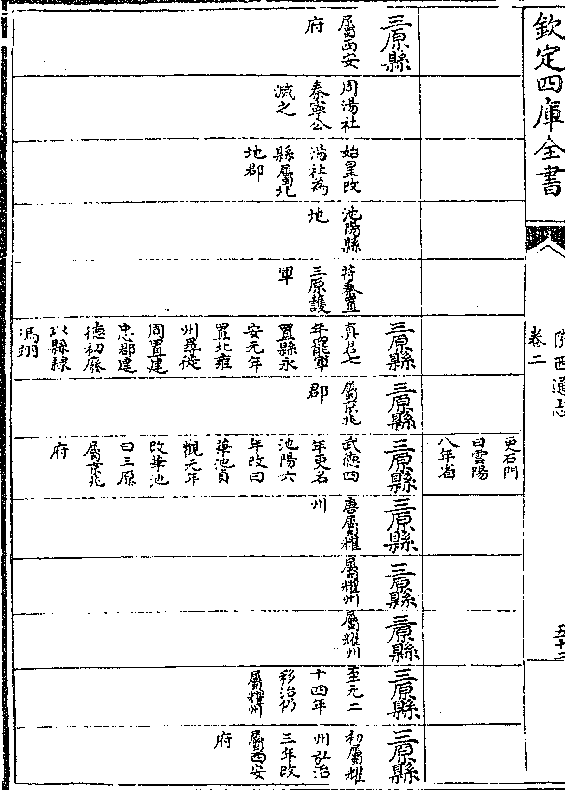 欽定四庫全書
陝西通志
卷二
更石門
曰雲陽
八年省
三原縣
屬西安
府
周湯社
秦寧公
滅之
始皇改
湯社為
縣屬北
地郡
池陽縣
地
苻秦置
三原護
軍
三原縣
真君七
年罷軍
置縣永
安元年
置北雍
州尋徙
周置建
忠郡建
德初廢
以縣隸
馮翊
三原縣
屬京兆
郡
三原縣
武德四
年更名
池陽六
年改曰
華池貞
觀元年
改華池
曰三原
屬京兆
府
三原縣
唐屬耀
州
三原縣
屬耀州
三原縣
屬耀州
三原縣
至元二
十四年
移治仍
屬耀州
三原縣
初屬耀
州弘治
三年改
屬西安
府